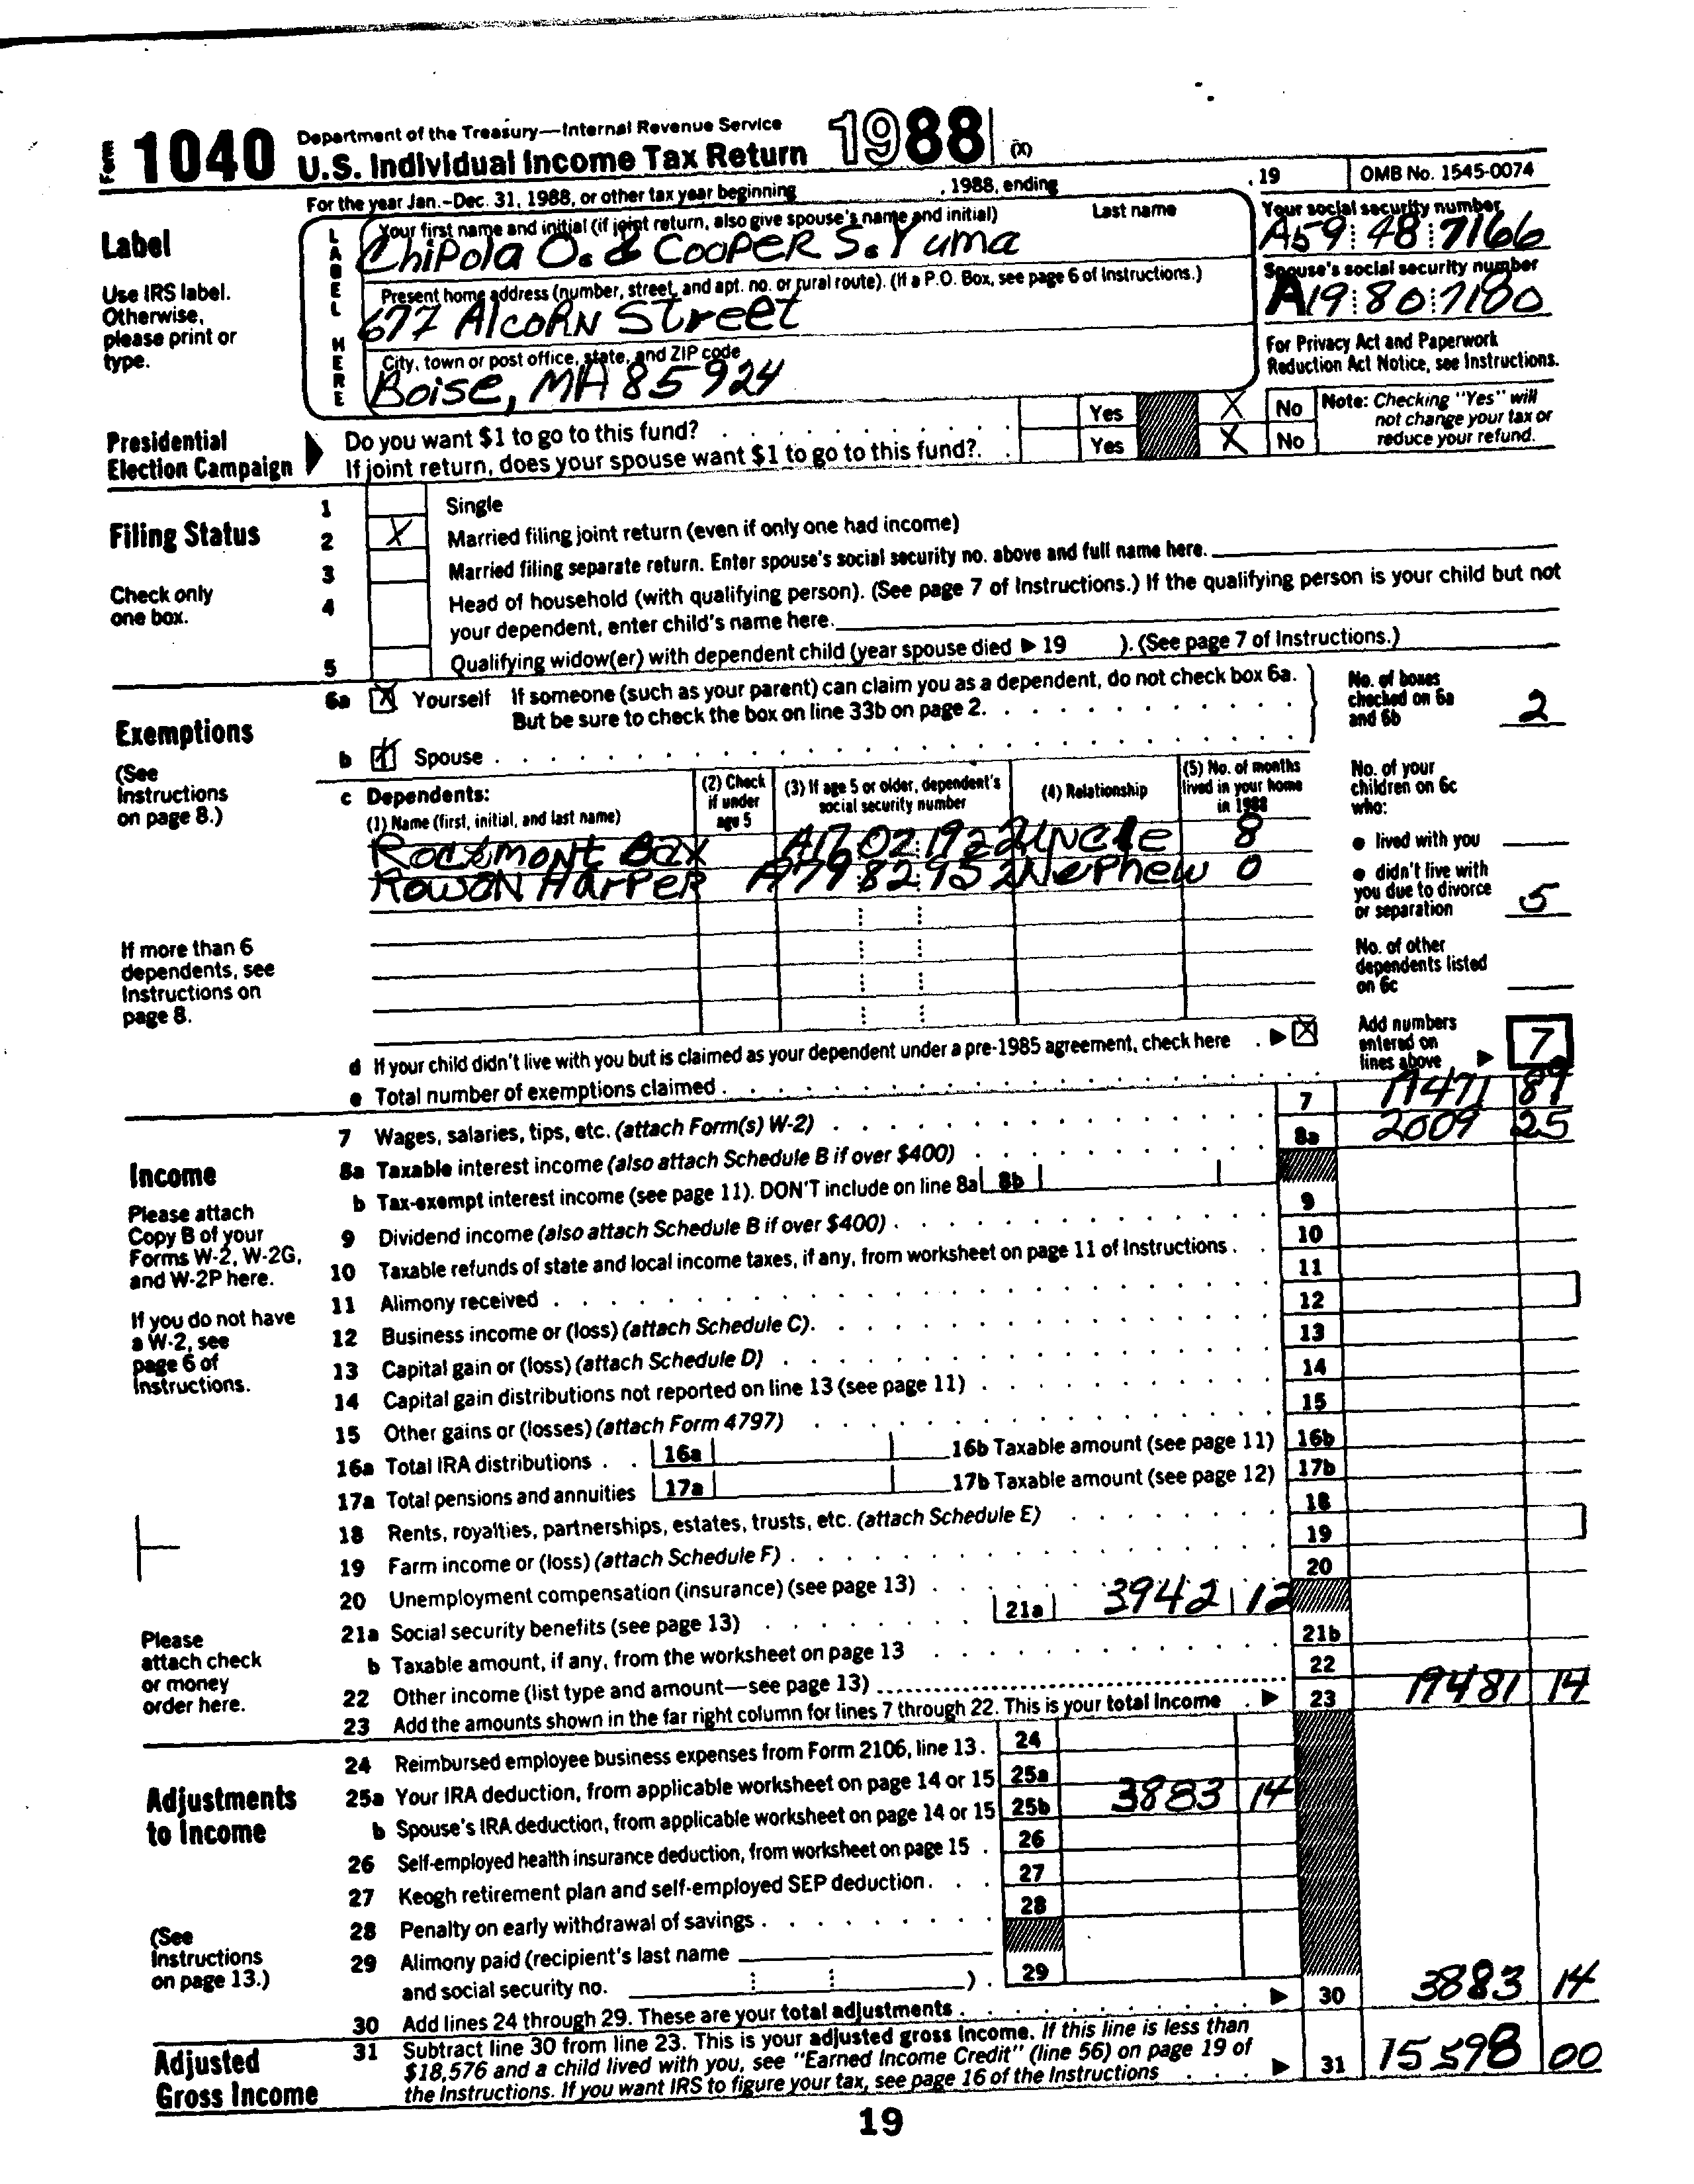 Form 1040 Department of the Treasury—Internal Revenue Service
U.S. Individual Income Tax Return 1988 (X)
For the year Jan.–Dec. 31, 1988, or other tax year beginning , 1988, ending , 19 OMB No. 1545-0074
Label
Use IRS label.
Otherwise,
please print or
type.
LABEL HERE
Your first name and initial (if joint return, also give spouse's name and initial) Last name
ChiPola O. & COOPER S. Yuma
Your social security number
A59 48 7166
Present home address (number, street, and apt. no. or rural route). (If a P.O. Box, see page 6 of Instructions.)
677 AlcoRN Street
Spouse's social security number
A19 80 7100
City, town or post office, state, and ZIP code
Boise, MA 85924
For Privacy Act and Paperwork
Reduction Act Notice, see Instructions.
Presidential
Election Campaign
Do you want $1 to go to this fund? Yes X No
If joint return, does your spouse want $1 to go to this fund? Yes X No
Note: Checking "Yes" will
not change your tax or
reduce your refund.
Filing Status
Check only
one box.
1 Single
2 X Married filing joint return (even if only one had income)
3 Married filing separate return. Enter spouse's social security no. above and full name here.
4 Head of household (with qualifying person). (See page 7 of Instructions.) If the qualifying person is your child but not
your dependent, enter child's name here.
5 Qualifying widow(er) with dependent child (year spouse died ▶ 19 ). (See page 7 of Instructions.)
Exemptions
(See
Instructions
on page 8.)
6a X Yourself If someone (such as your parent) can claim you as a dependent, do not check box 6a.
But be sure to check the box on line 33b on page 2.
b X Spouse
No. of boxes
checked on 6a
and 6b 2
c Dependents:
(1) Name (first, initial, and last name)
(2) Check
if under
age 5
(3) If age 5 or older, dependent's
social security number
(4) Relationship
(5) No. of months
lived in your home
in 1988
Rockmont Bax A17 02 1922 Uncle 8
Rowon Harper A79 82 952 Nephew 0
No. of your
children on 6c
who:
● lived with you
● didn't live with
you due to divorce
or separation 5
No. of other
dependents listed
on 6c
If more than 6
dependents, see
Instructions on
page 8.
d If your child didn't live with you but is claimed as your dependent under a pre-1985 agreement, check here ▶ X
e Total number of exemptions claimed
Add numbers
entered on
lines above ▶ 7
Income
Please attach
Copy B of your
Forms W-2, W-2G,
and W-2P here.
If you do not have
a W-2, see
page 6 of
Instructions.
Please
attach check
or money
order here.
7 Wages, salaries, tips, etc. (attach Form(s) W-2) 7 17471 89
8a Taxable interest income (also attach Schedule B if over $400) 8a 2009 25
b Tax-exempt interest income (see page 11). DON'T include on line 8a 8b
9 Dividend income (also attach Schedule B if over $400) 9
10 Taxable refunds of state and local income taxes, if any, from worksheet on page 11 of Instructions 10
11 Alimony received 11
12 Business income or (loss) (attach Schedule C) 12
13 Capital gain or (loss) (attach Schedule D) 13
14 Capital gain distributions not reported on line 13 (see page 11) 14
15 Other gains or (losses) (attach Form 4797) 15
16a Total IRA distributions 16a 16b Taxable amount (see page 11) 16b
17a Total pensions and annuities 17a 17b Taxable amount (see page 12) 17b
18 Rents, royalties, partnerships, estates, trusts, etc. (attach Schedule E) 18
19 Farm income or (loss) (attach Schedule F) 19
20 Unemployment compensation (insurance) (see page 13) 20
21a Social security benefits (see page 13) 21a 3942 12
b Taxable amount, if any, from the worksheet on page 13 21b
22 Other income (list type and amount—see page 13) 22
23 Add the amounts shown in the far right column for lines 7 through 22. This is your total income ▶ 23 19481 14
Adjustments
to Income
(See
Instructions
on page 13.)
24 Reimbursed employee business expenses from Form 2106, line 13. 24
25a Your IRA deduction, from applicable worksheet on page 14 or 15 25a
b Spouse's IRA deduction, from applicable worksheet on page 14 or 15 25b 3883 14
26 Self-employed health insurance deduction, from worksheet on page 15 26
27 Keogh retirement plan and self-employed SEP deduction 27
28 Penalty on early withdrawal of savings 28
29 Alimony paid (recipient's last name
and social security no. ) 29
30 Add lines 24 through 29. These are your total adjustments ▶ 30 3883 14
Adjusted
Gross Income
31 Subtract line 30 from line 23. This is your adjusted gross income. If this line is less than
$18,576 and a child lived with you, see "Earned Income Credit" (line 56) on page 19 of
the Instructions. If you want IRS to figure your tax, see page 16 of the Instructions ▶ 31 15598 00
19